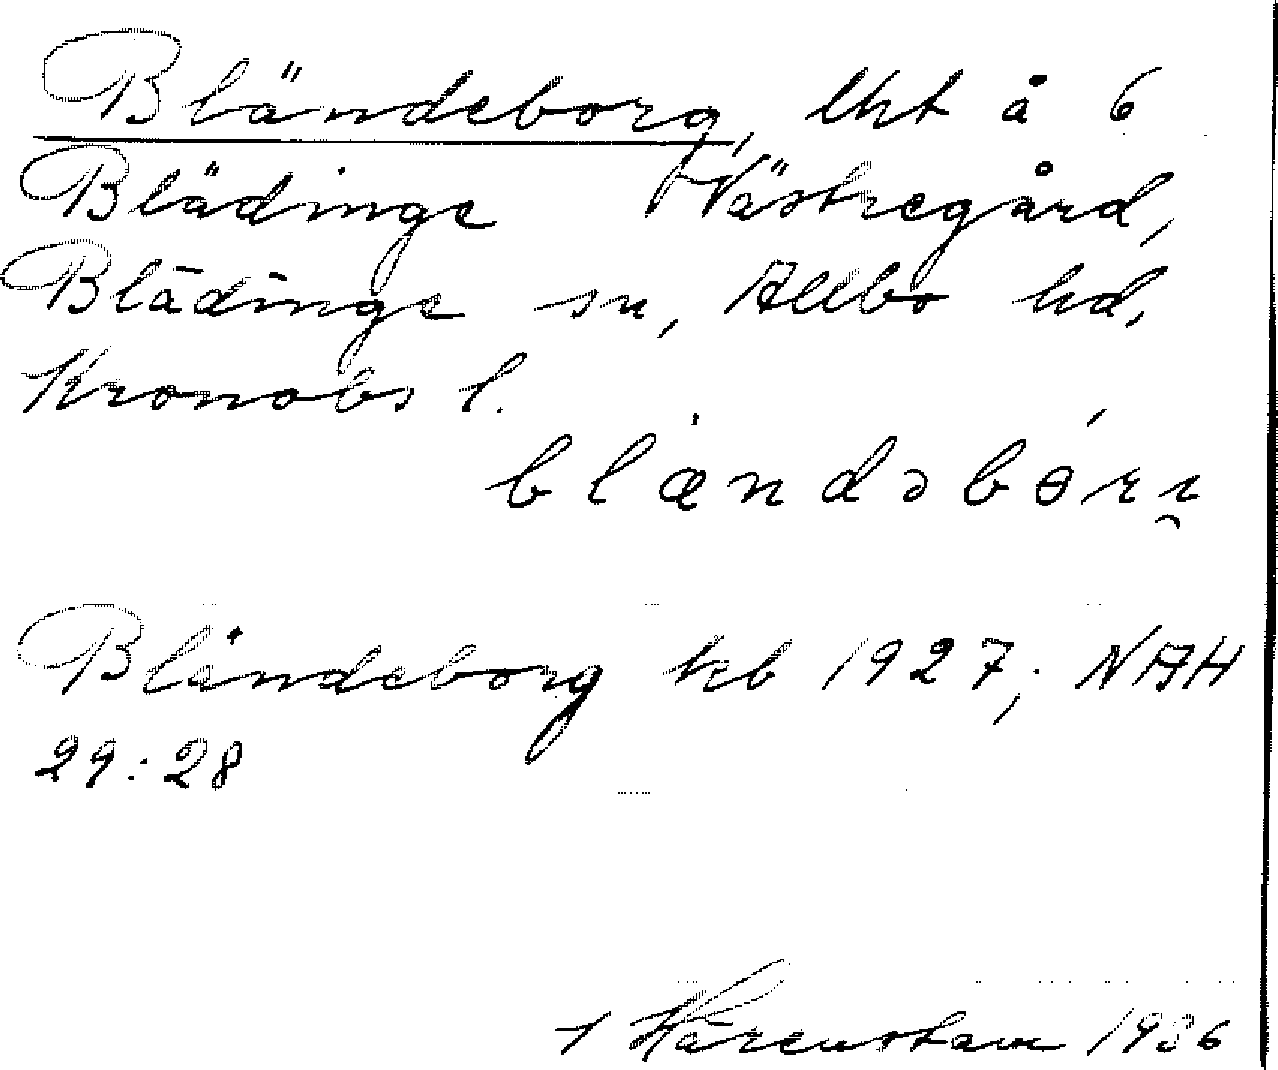 Bländeborg, lht å 6
Blädinge Västregård,
Blädinge sn, Allbo hd,
Kronobs l.
blændəbɵrı
Bländeborg kb 1927; NAH
29:28
Härenstam 1936